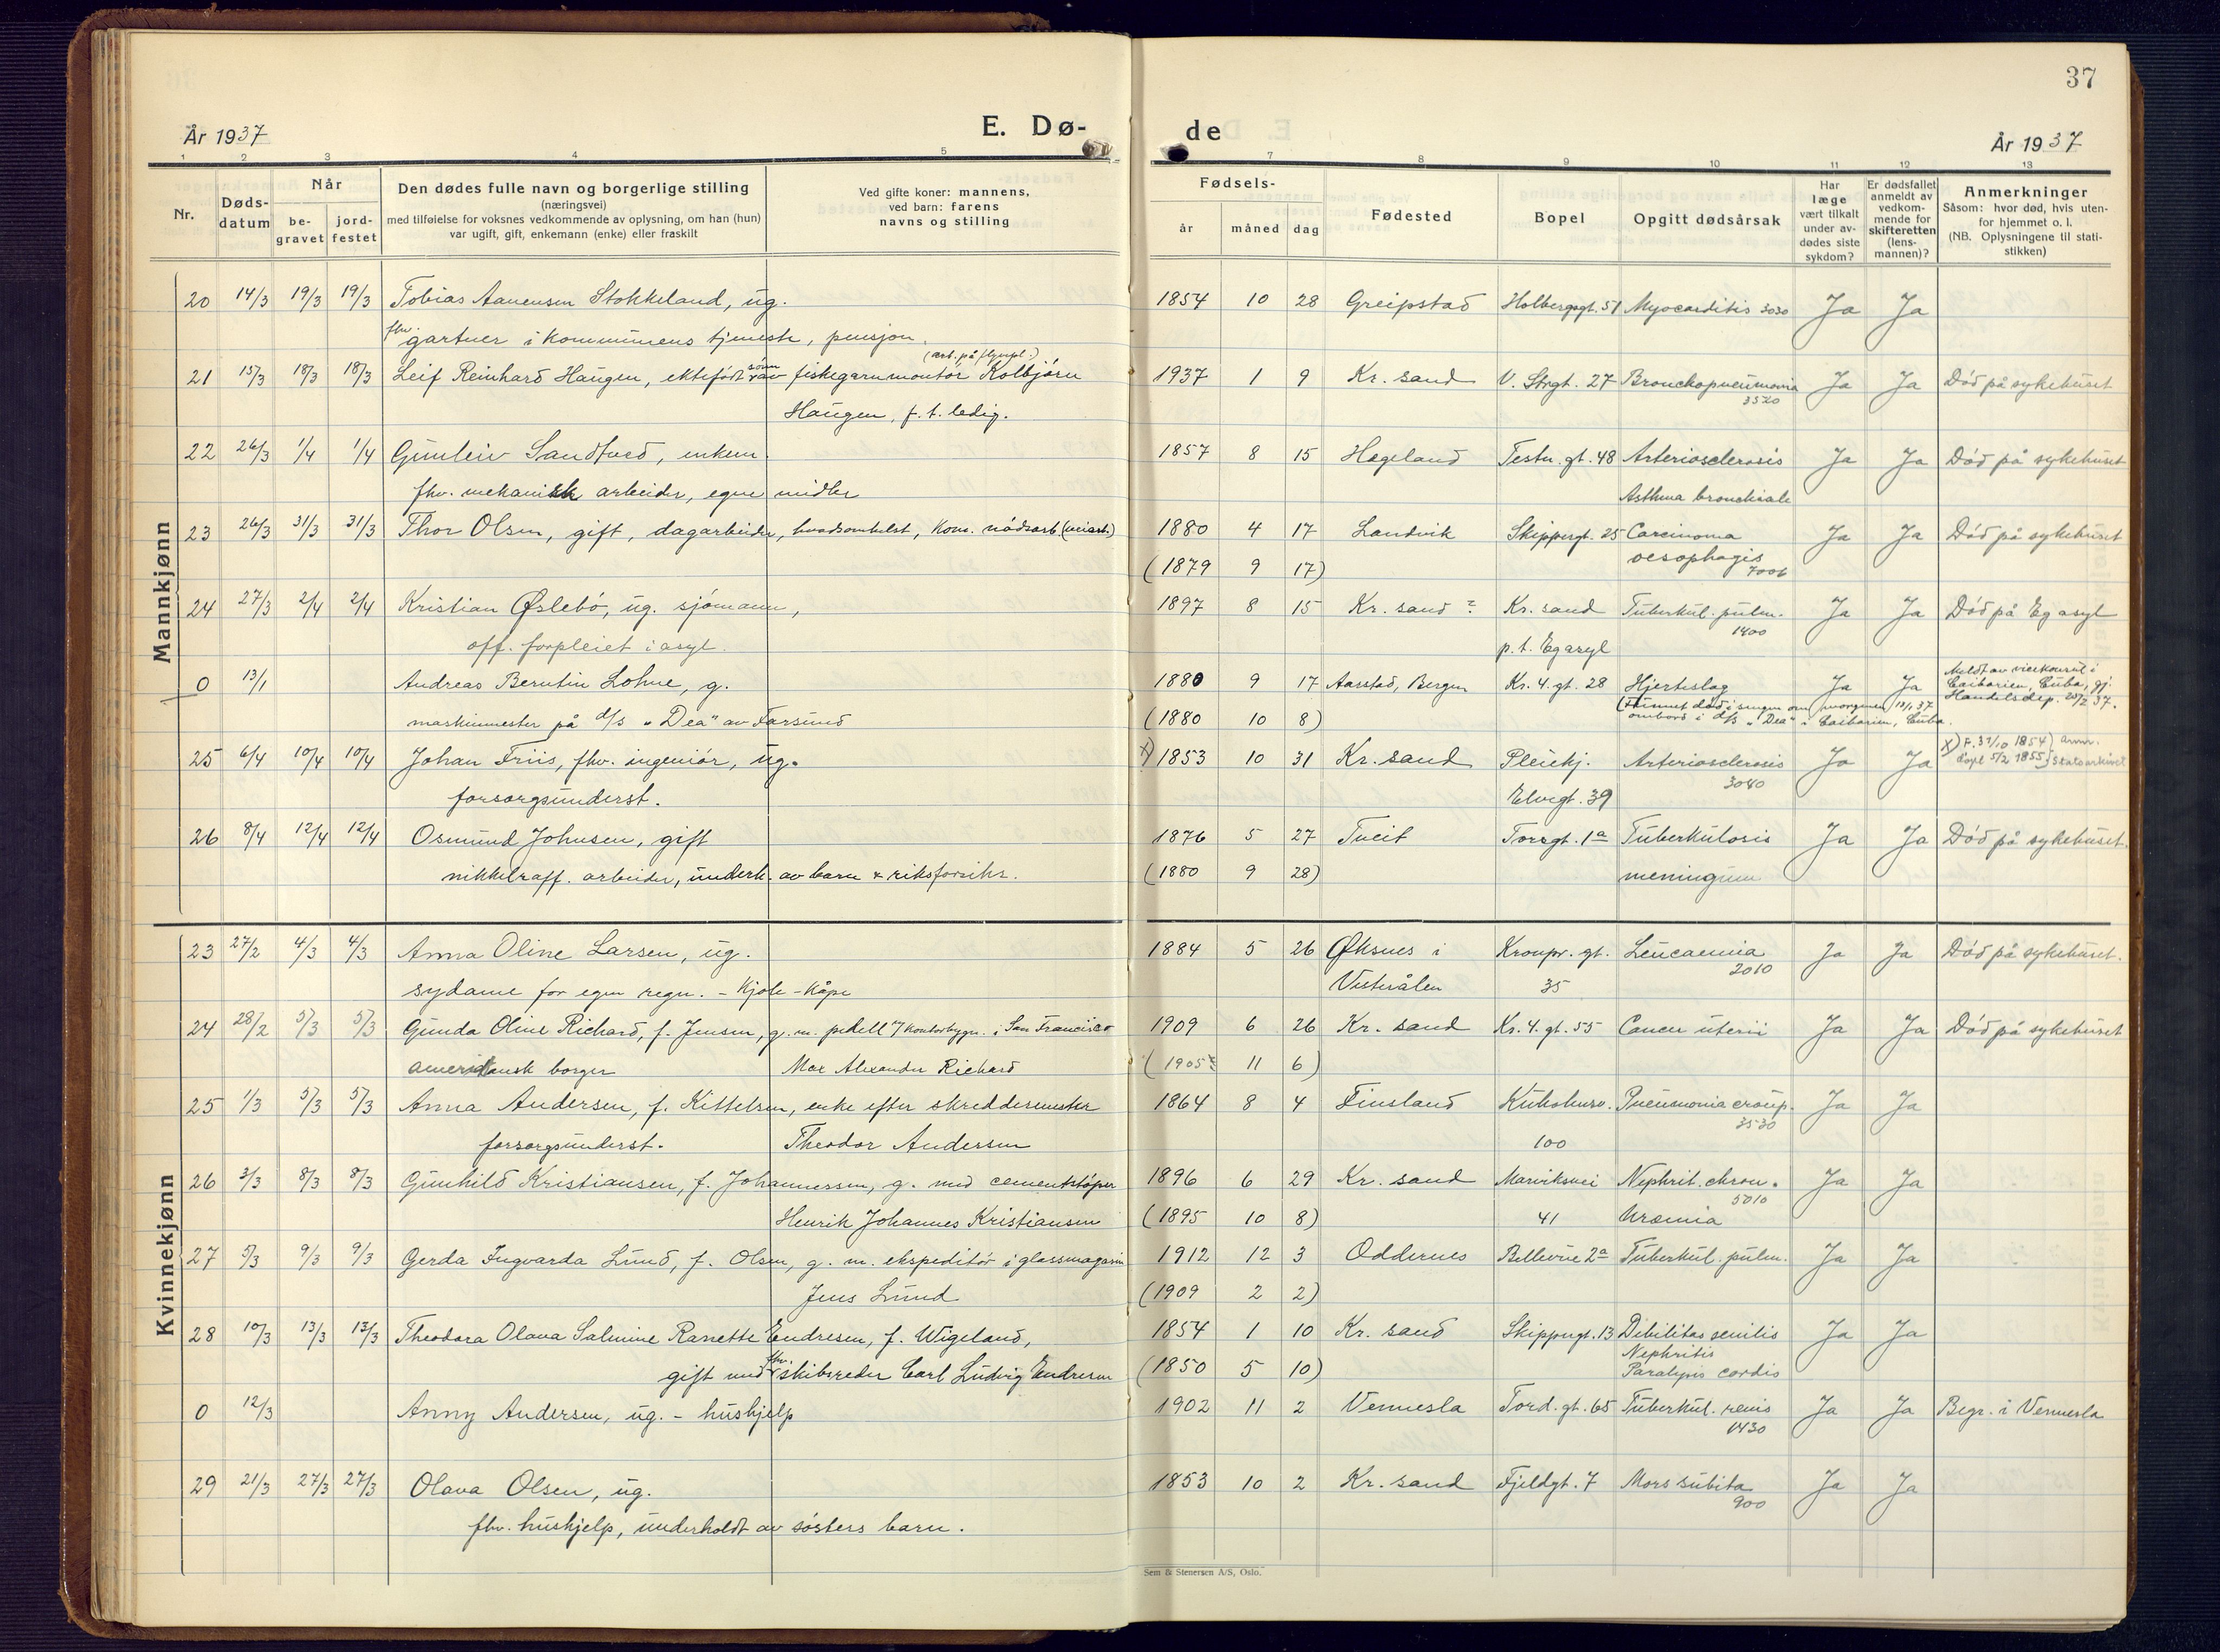 37
År 1937
E. Dø-
de
År 1937
1 2 3 4 5 7 8 9 10 11 12 13
Nr.
Døds-
datum
Når
be-
gravet
jord-
festet
Den dødes fulle navn og borgerlige stilling
(næringsvei)
med tilføielse for voksnes vedkommende av oplysning, om han (hun)
var ugift, gift, enkemann (enke) eller fraskilt
Ved gifte koner: mannens,
ved barn: farens
navns og stilling
Fødsels-
år måned dag
Fødested
Bopel
Opgitt dødsårsak
Har
læge
vært tilkalt
under av-
dødes siste
sykdom?
Er dødsfallet
anmeldt av
vedkom-
mende for
skifteretten
(lens-
mannen)?
Anmerkninger
Såsom: hvor død, hvis uten-
for hjemmet o. l.
(NB. Oplysningene til stati-
stikken)
Mannkjønn
20 14/3 19/3 19/3 Tobias Aanensen Stokkeland, ug. 1854 10 28 Greipstad Holbergsgt. 51 Myocarditis 3030 Ja Ja
fhv. gartner i kommunens tjeneste, pensjon.
(arb. på flypl.)
21 15/3 18/3 18/3 Leif Reinhard Haugen, ektefødt sønn av fiskegarnmontør Kolbjørn 1937 1 9 Kr. sand V. Strgt. 27 Bronchopneumonia 3520 Ja Ja Død på sykehuset
Haugen, f. t. ledig.
22 26/3 1/4 1/4 Gunleiv Sandtved, enkem. 1857 8 15 Hægeland Testm. gt. 48 Arteriosclerosis Ja Ja Død på sykehuset
fhv. mekanisk arbeider, egne midler Asthma bronchiale
23 26/3 31/3 31/3 Thor Olsen, gift, dagarbeider, hvadsomhelst, kom. nødsarb. (veiarb.) 1880 4 17 Landvik Skippergt. 25 Carcinoma Ja Ja Død på sykehuset
(1879 9 17) oesophagis 7006
24 27/3 2/4 2/4 Kristian Øslebø, ug. sjømann, 1897 8 15 Kr. sand ? Kr. sand Tuberkul. pulm. 1400 Ja Ja Død på Eg asyl
off. forpleiet i asyl. p. t. Eg asyl
0 13/1 Andreas Berntin Lohne, g. 1880 9 17 Aarstad, Bergen Kr. 4. gt. 28 Hjerteslag Ja Ja Meldt av visekonsul i Caibarien, Cuba, gj. Handelsdep. 25/2 37.
maskinmester på d/s "Dea" av Farsund (1880 10 8) (Funnet død i sengen om morgenen 13/1 37 ombord i d/s "Dea" i Caibarien, Cuba.
25 6/4 10/4 10/4 Johan Friis, fhv. ingeniør, ug. x) 1853 10 31 Kr. sand Pleiehj. Arteriosclerosis 3040 Ja Ja x) F. 31/10 1854) døpt 5/2 1855) Statsarkivet
forsorgsunderst. Elvegt. 39
26 8/4 12/4 12/4 Osmund Johnsen, gift 1876 5 27 Tveit Torsgt. 1a Tuberkulosis Ja Ja Død på sykehuset.
nikkelraff. arbeider, underh. av barn & riksforsikr. (1880 9 28) meningium
Kvinnekjønn
23 27/2 4/3 4/3 Anna Oline Larsen, ug. 1884 5 26 Øksnes i Kronpr. gt. Leucaemia 2010 Ja Ja Død på sykehuset.
sydame for egen regn. - Kjole - Kåpe Vesterålen 35
24 28/2 5/3 5/3 Gunda Oline Richard, f. Jensen, g. m. pedell v/ kontorbygn. i San Francisco 1909 6 26 Kr. sand Kr. 4. gt. 55 Cancer uterii Ja Ja Død på sykehuset
amerikansk borger Max Alexander Richard (1905 11 6)
25 1/3 5/3 5/3 Anna Andersen, f. Kittelsen, enke efter skreddermester 1864 8 4 Finsland Kuholmsv. Pneumonia croup. 3530 Ja Ja
forsorgsunderst. Theodor Andersen 100
26 3/3 8/3 8/3 Gunhild Kristiansen, f. Johannessen, g. med cementstøper 1896 6 29 Kr. sand Marviksvei Nephrit. chron. 5010 Ja Ja
Henrik Johannes Kristiansen (1895 10 8) 41 Uræmia
27 5/3 9/3 9/3 Gerda Ingvarda Lund, f. Olsen, g. m. ekspeditør i glassmagasin 1912 12 3 Oddernes Bellevue 2a Tuberkul. pulm. Ja Ja
Jens Lund (1909 2 2)
28 10/3 13/3 13/3 Theodora Olava Salmine Ranette Endresen, f. Wigeland, 1854 1 10 Kr. sand Skippergt. 13 Debilitas senilis Ja Ja
gift med fhv. skibsreder Carl Ludvig Endresen (1850 5 10) Nephritis
Paralysis cordis
0 12/3 Anny Andersen, ug. - hushjelp 1902 11 2 Vennesla Tord. gt. 65 Tuberkul. renis 1430 Ja Ja Begr. i Vennesla
29 21/3 27/3 27/3 Olava Olsen, ug. 1853 10 2 Kr. sand Fjeldgt. 7 Mors subita 900 Ja Ja
fhv. hushjelp, underholdt av søsters barn.
Sem & Stenersen A/S, Oslo.